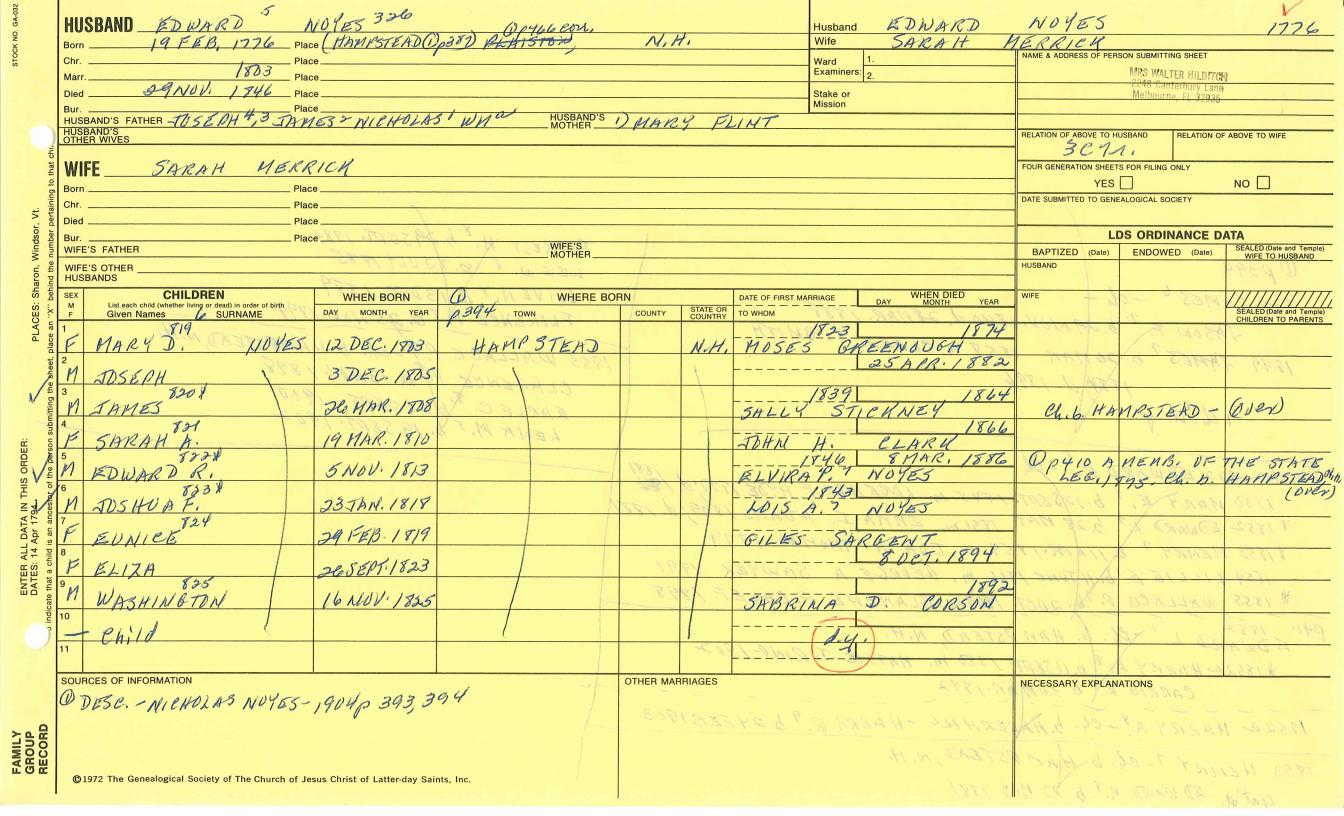 STOCK NO. GA-032
HUSBAND EDWARD 5 NOYES 326
Born 19 FEB. 1776 Place (HAMPSTEAD ① p387) PLAISTOW, N.H.
Chr. Place
Marr. 1803 Place
Died 29 NOV. 1846 Place
Bur. Place
HUSBAND'S FATHER JOSEPH 4, 3 JAMES 2 NICHOLAS 1 Wm a HUSBAND'S MOTHER 1) MARY FLINT
HUSBAND'S OTHER WIVES
Husband EDWARD NOYES 1776
Wife SARAH MERRICK
Ward Examiners: 1.
2.
Stake or Mission
NAME & ADDRESS OF PERSON SUBMITTING SHEET
MRS WALTER HILDITCH
2248 Canterbury Lane
Melbourne, FL 32935
RELATION OF ABOVE TO HUSBAND RELATION OF ABOVE TO WIFE
FOUR GENERATION SHEETS FOR FILING ONLY
YES NO
DATE SUBMITTED TO GENEALOGICAL SOCIETY
WIFE SARAH MERRICK
Born Place
Chr. Place
Died Place
Bur. Place
WIFE'S FATHER WIFE'S MOTHER
WIFE'S OTHER HUSBANDS
LDS ORDINANCE DATA
BAPTIZED (Date) ENDOWED (Date) SEALED (Date and Temple) WIFE TO HUSBAND
HUSBAND
WIFE
SEALED (Date and Temple) CHILDREN TO PARENTS
SEX M F
CHILDREN
List each child (whether living or dead) in order of birth
Given Names 6 SURNAME
WHEN BORN
DAY MONTH YEAR
① p394
WHERE BORN
TOWN COUNTY STATE OR COUNTRY
DATE OF FIRST MARRIAGE
TO WHOM
WHEN DIED
DAY MONTH YEAR
1 F MARY D. 819 NOYES 12 DEC. 1803 HAMPSTEAD N.H. 1823 MOSES GREENOUGH 1874
2 M JOSEPH 3 DEC. 1805 25 APR. 1882
3 M JAMES 820 26 MAR. 1808 1839 SALLY STICKNEY 1864
Ch. b. HAMPSTEAD - (over)
4 F SARAH A. 821 19 MAR. 1810 JOHN H. CLARK 1866
5 M EDWARD R. 822 5 NOV. 1813 1846 ELVIRA P. 7 NOYES 8 MAR. 1886
① p410 A MEMB. OF THE STATE
LEG., 1875. Ch. n. HAMPSTEAD,
(over)
6 M JOSHUA F. 823 23 JAN. 1818 1843 LOIS A. 7 NOYES
7 F EUNICE 824 29 FEB. 1819 GILES SARGENT
8 F ELIZA 26 SEPT. 1823 8 OCT. 1894
9 M WASHINGTON 825 16 NOV. 1825 SABRINA D. CORSON 1892
10 — Child d.y.
11
SOURCES OF INFORMATION
① DESC. - NICHOLAS NOYES - 1904 p 393, 394
OTHER MARRIAGES
NECESSARY EXPLANATIONS
©1972 The Genealogical Society of The Church of Jesus Christ of Latter-day Saints, Inc.
FAMILY GROUP RECORD
ENTER ALL DATA IN THIS ORDER:
DATES: 14 Apr 1794
PLACES: Sharon, Windsor, Vt.
to indicate that a child is an ancestor of the person submitting the sheet, place an "X" behind the number pertaining to that